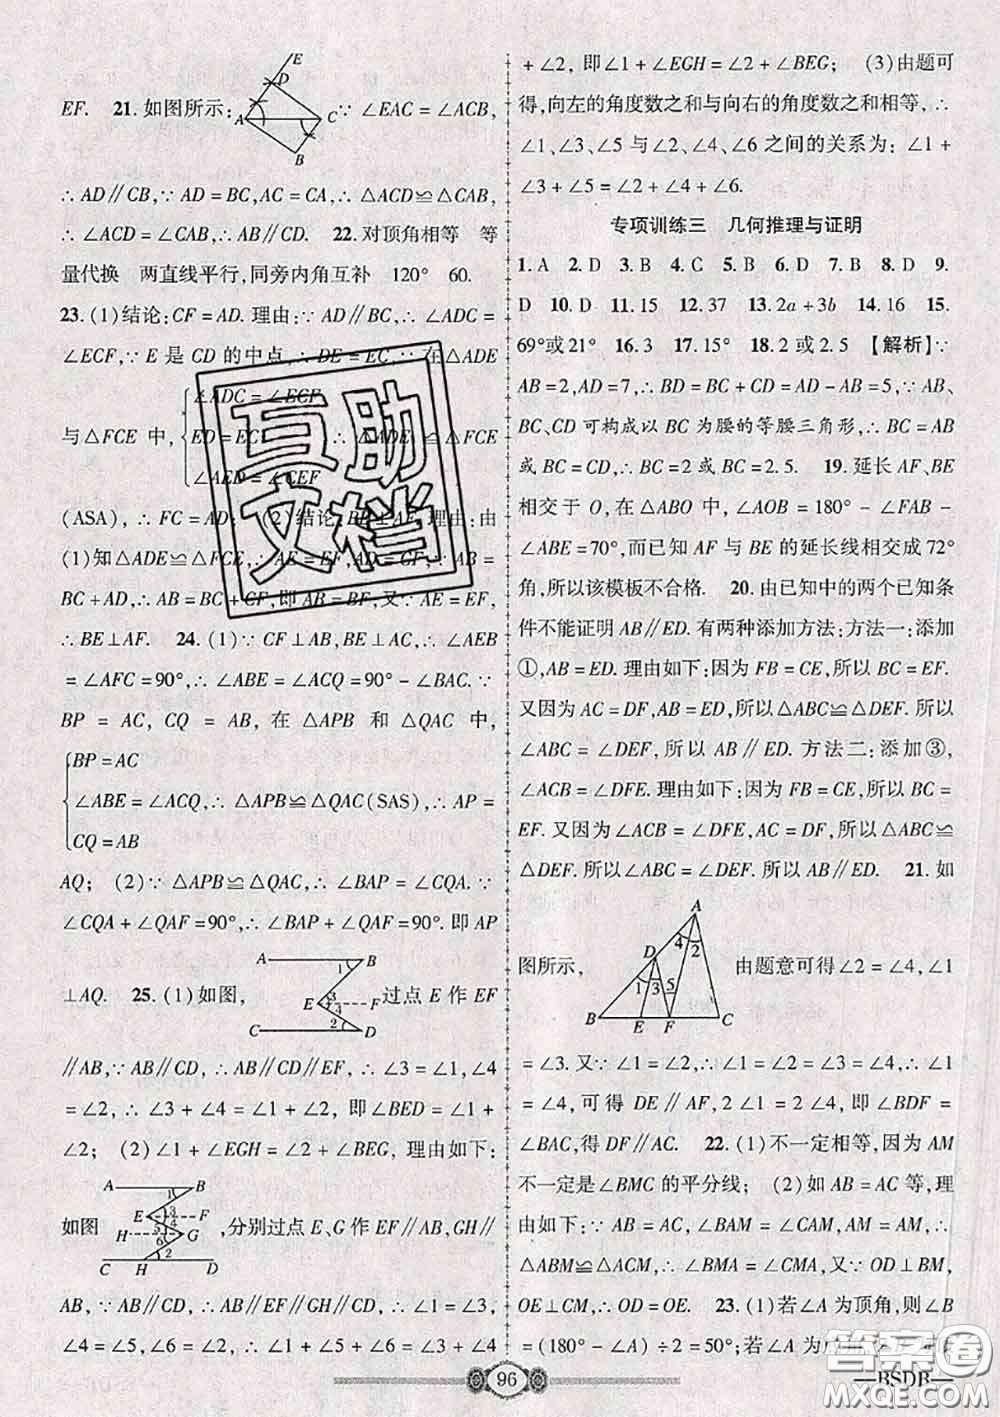 EF.　21. 如图所示: E D A C B ∵ ∠EAC = ∠ACB,
∴ AD∥CB,∵ AD = BC,AC = CA,∴ △ACD≌△CAB,
∴ ∠ACD = ∠CAB,∴ AB∥CD.　22. 对顶角相等　等
量代换　两直线平行,同旁内角互补　120°　60.
23. (1)结论:CF = AD. 理由:∵ AD∥BC,∴ ∠ADC =
∠ECF,∵ E 是 CD 的中点,∴ DE = EC,∵ 在△ADE
∠ADC = ∠ECF
与△FCE 中, ED = EC ∴ △ADE ≌ △FCE
∠AED = ∠CEF
(ASA),∴ FC = AD;　(2)结论:BE⊥AF. 理由:由
(1)知△ADE≌△FCE,∴ AE = EF,AD = CF,∵ AB =
BC + AD,∴ AB = BC + CF,即 AB = BF,又∵ AE = EF,
∴ BE⊥AF.　24. (1)∵ CF⊥AB,BE⊥AC,∴ ∠AEB
= ∠AFC = 90°,∴ ∠ABE = ∠ACQ = 90° - ∠BAC. ∵
BP = AC, CQ = AB, 在 △APB 和 △QAC 中,
BP = AC
∠ABE = ∠ACQ, ∴ △APB≌△QAC(SAS),∴ AP =
CQ = AB
AQ;　(2)∵ △APB≌△QAC,∴ ∠BAP = ∠CQA. ∵
∠CQA + ∠QAF = 90°,∴ ∠BAP + ∠QAF = 90°. 即 AP
⊥AQ.　25. (1)如图, A B 1 E 3 4 F 2 C D 过点 E 作 EF
∥AB,∵ AB∥CD,∴ AB∥CD∥EF,∴ ∠3 = ∠1,∠4
= ∠2,∴ ∠3 + ∠4 = ∠1 + ∠2, 即∠BED = ∠1 +
∠2;　(2) ∠1 + ∠EGH = ∠2 + ∠BEG, 理由如下:
如图 A B 1 E 3 4 F H 5 6 G 2 C H D ,分别过点 E、G 作 EF∥AB,GH∥
AB,∵ AB∥CD,∴ AB∥EF∥GH∥CD,∴ ∠1 = ∠3,
∠4 = ∠5,∠6 = ∠2,∴ ∠1 + ∠5 + ∠6 = ∠3 + ∠4
+ ∠2, 即∠1 + ∠EGH = ∠2 + ∠BEG;　(3)由题可
得,向左的角度数之和与向右的角度数之和相等,∴
∠1、∠3、∠5 与∠2、∠4、∠6 之间的关系为:∠1 +
∠3 + ∠5 = ∠2 + ∠4 + ∠6.
专项训练三　几何推理与证明
1. A　2. D　3. B　4. C　5. B　6. D　7. B　8. D　9.
D　10. D　11. 15　12. 37　13. 2a + 3b　14. 16　15.
69°或 21°　16. 3　17. 15°　18. 2 或 2.5　【解析】∵
AB = 2,AD = 7,∴ BD = BC + CD = AD - AB = 5,∵ AB、
BC、CD 可构成以 BC 为腰的等腰三角形,∴ BC = AB
或 BC = CD,∴ BC = 2 或 BC = 2.5.　19. 延长 AF、BE
相交于 O,在△ABO 中,∠AOB = 180° - ∠FAB -
∠ABE = 70°,而已知 AF 与 BE 的延长线相交成 72°
角,所以该模板不合格.　20. 由已知中的两个已知条
件不能证明 AB∥ED. 有两种添加方法:方法一:添加
①,AB = ED. 理由如下:因为 FB = CE,所以 BC = EF.
又因为 AC = DF,AB = ED,所以△ABC≌△DEF. 所以
∠ABC = ∠DEF,所以 AB∥ED. 方法二:添加③,
∠ACB = ∠DFE. 理由如下:因为 FB = CE,所以 BC =
EF. 又因为∠ACB = ∠DFE,AC = DF,所以△ABC≌
△DEF. 所以∠ABC = ∠DEF. 所以 AB∥ED.　21. 如
图所示, A D 4 2 1 3 5 B E F C 由题意可得∠2 = ∠4,∠1
= ∠3. 又∵ ∠1 = ∠2,∴ ∠1 = ∠2 = ∠3 = ∠4,∴ ∠1
= ∠4,可得 DE∥AF,2∠1 = 2∠4,即∠BDF =
∠BAC,得 DF∥AC.　22. (1)不一定相等,因为 AM
不一定是∠BMC 的平分线;　(2)如 AB = AC 等,理
由如下:∵ AB = AC,∠BAM = ∠CAM,AM = AM,∴
△ABM≌△ACM,∴ ∠BMA = ∠CMA,又∵ OD⊥BM,
OE⊥CM,∴ OD = OE.　23. (1)若∠A 为顶角,则∠B
= (180° - ∠A) ÷ 2 = 50°;若∠A 为
96
BSDB
互助文档
答案圈
MXQE.COM